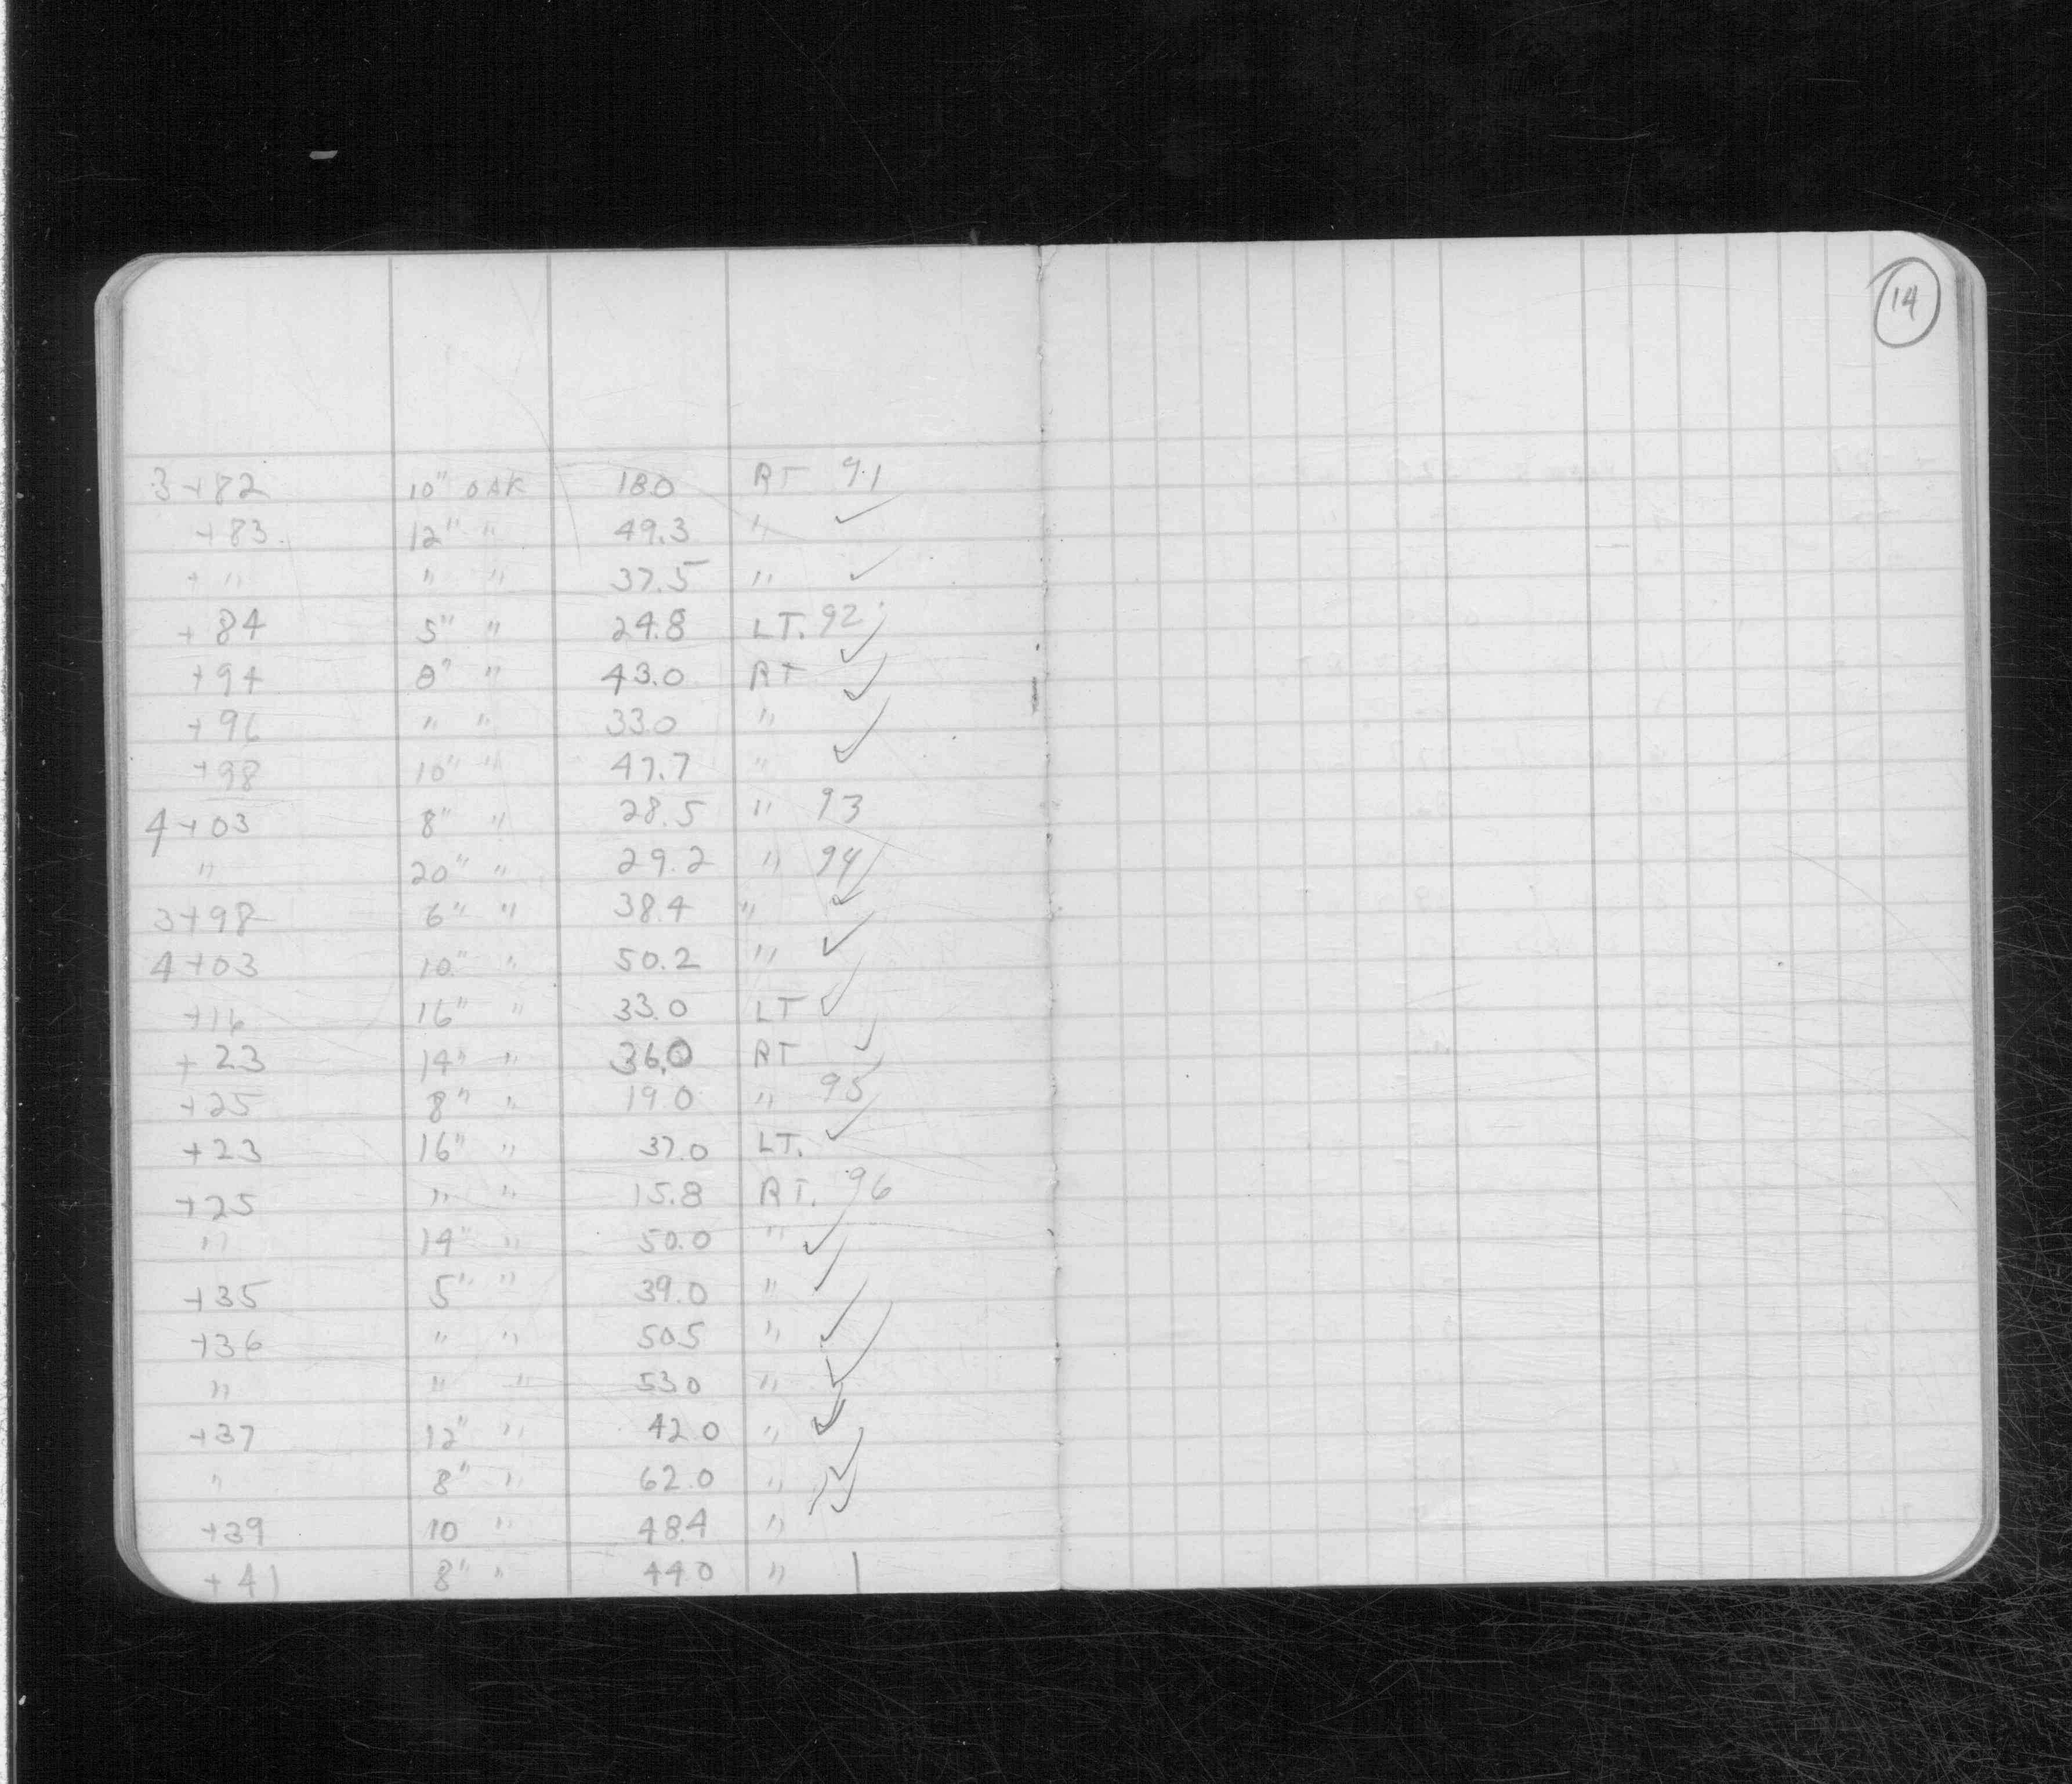 14
3+82 10" OAK 18.0 RT 91
+83. 12" " 49.3 " ✓
+ " " " 37.5 " ✓
+84 5" " 24.8 LT. 92 ✓
+94 8" " 43.0 RT ✓
+96 " " 33.0 " ✓
+98 10" " 47.7 "
4+03 8" " 28.5 " 93
" 20" " 29.2 " 94
3+98 6" " 38.4 " ✓
4+03 10" " 50.2 " ✓
+16 16" " 33.0 LT ✓
+23 14" " 36.0 RT ✓
+25 8" " 19.0 " 95
+23 16" " 37.0 LT. ✓
+25 " " 15.8 RT. 96
" 14" " 50.0 " ✓
+35 5" " 39.0 " /
+36 " " 50.5 " ✓
" " " 53.0 " ✓
+37 12" " 42.0 " ✓
" 8" " 62.0 " ✓
+39 10 " 48.4 "
+41 8" " 44.0 "